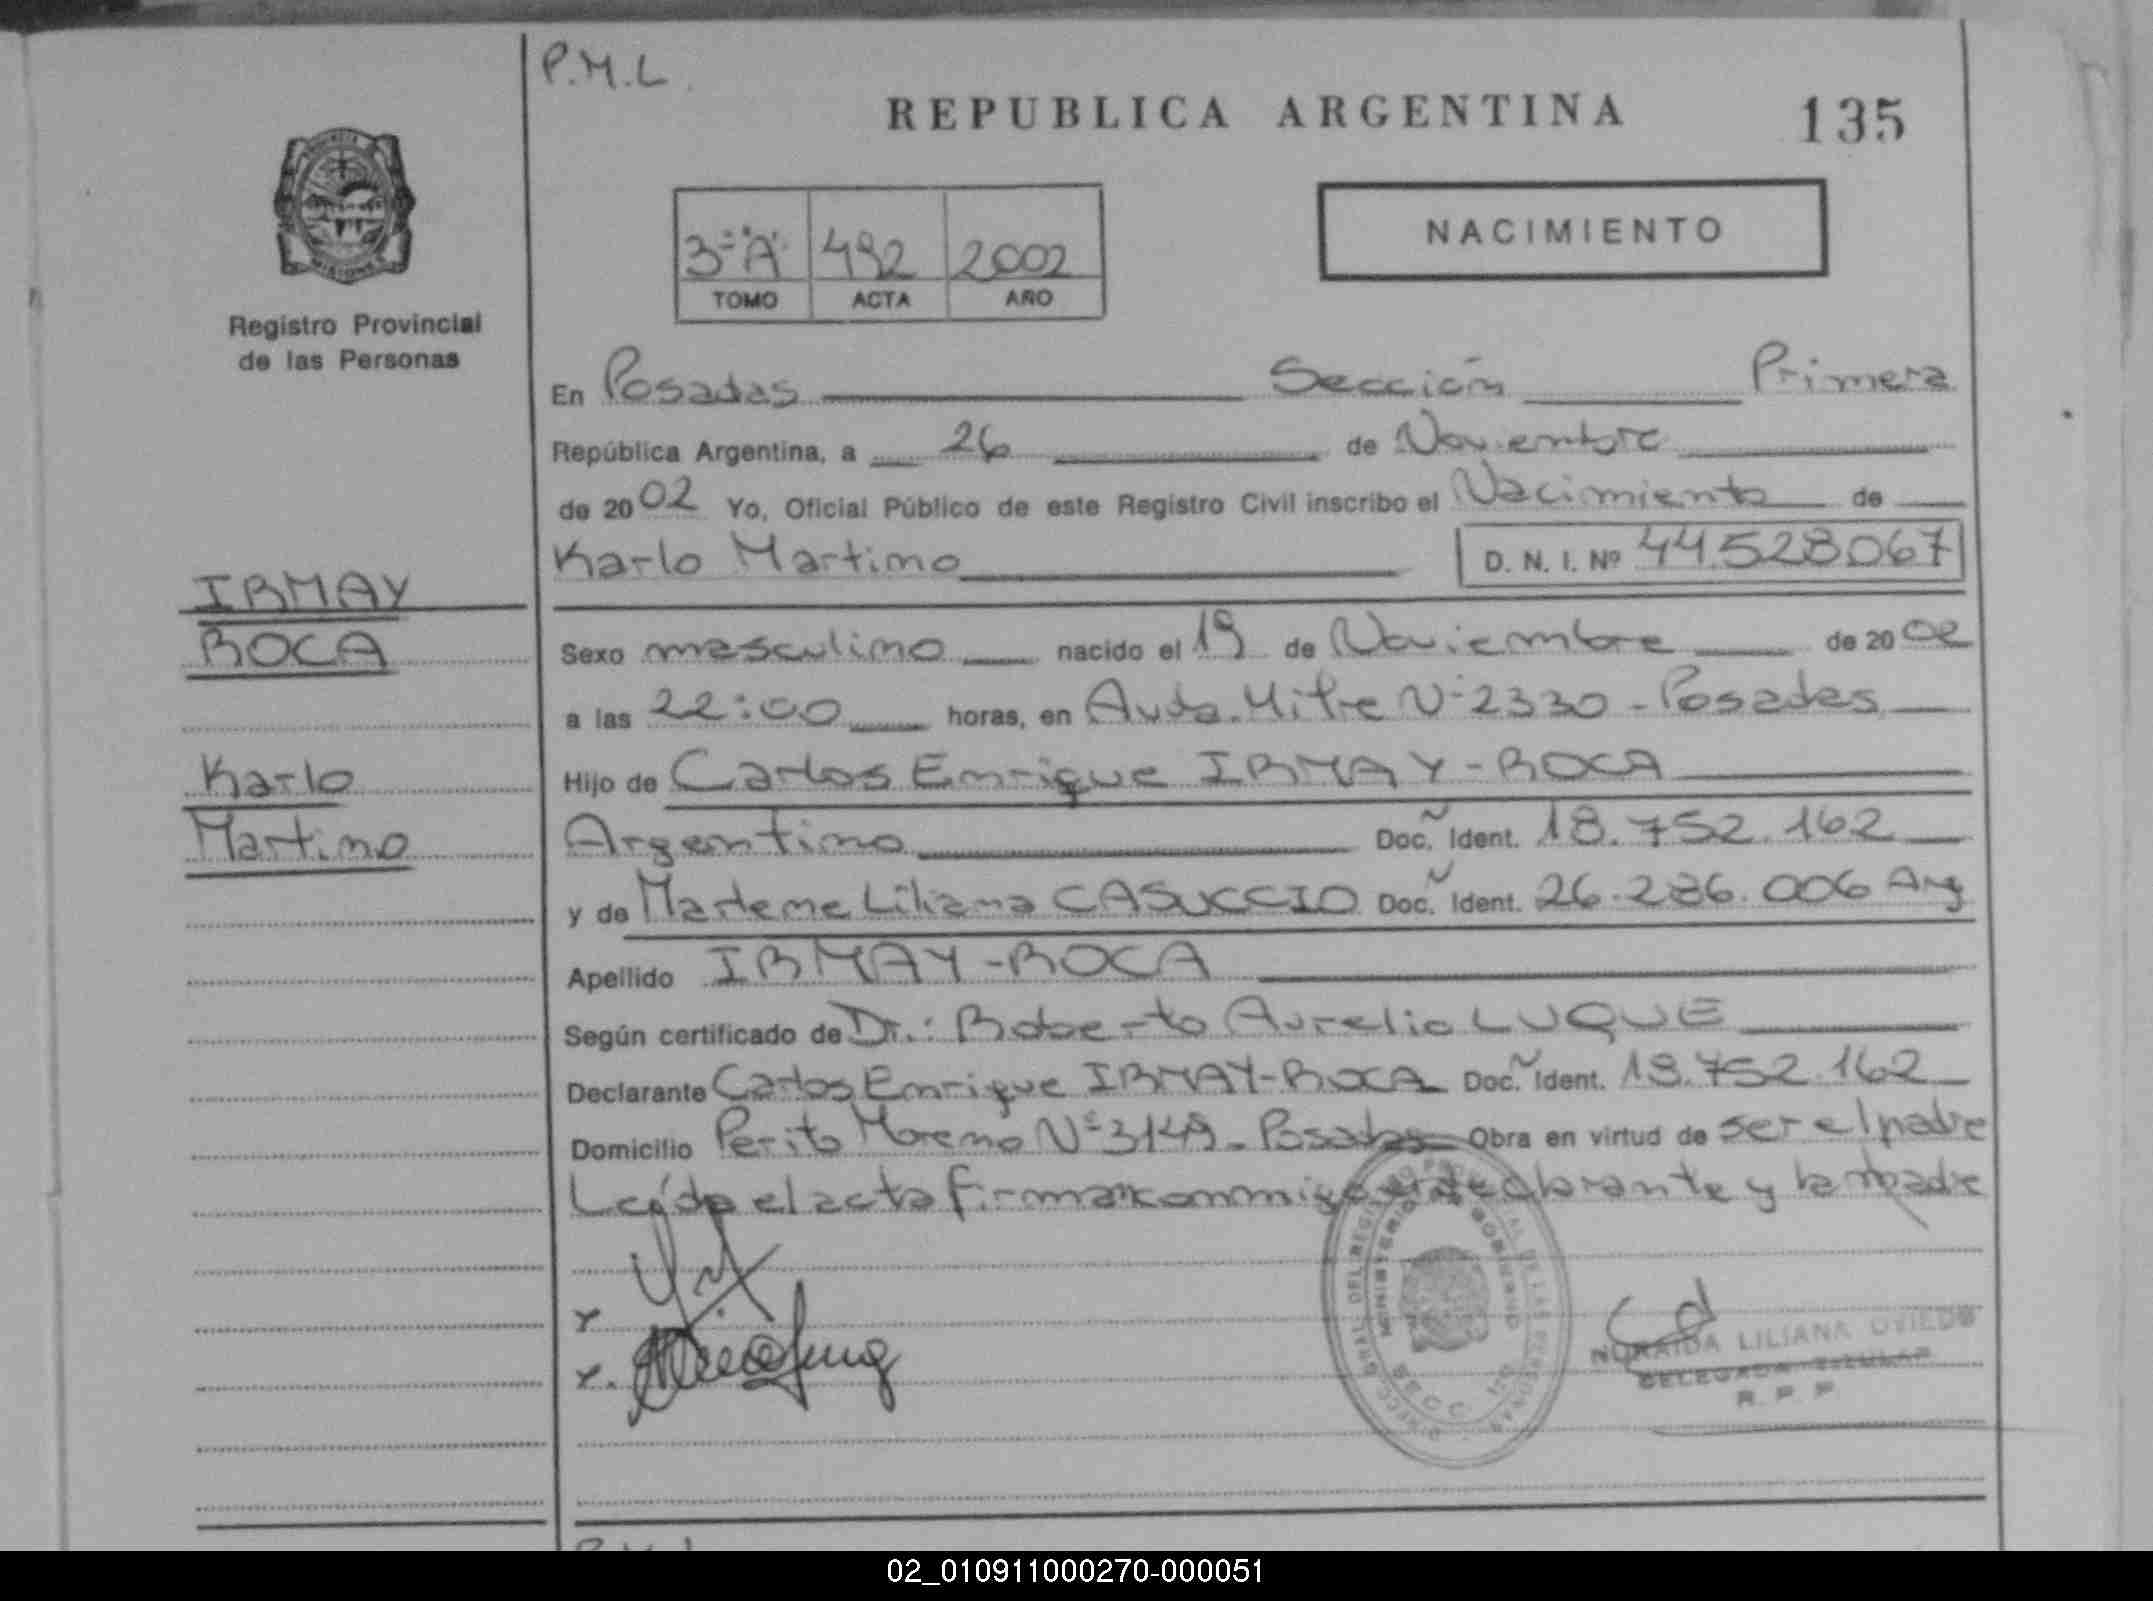 P.M.L.
REPUBLICA ARGENTINA 135
3º "A" 492 2002
TOMO ACTA AÑO
NACIMIENTO
Registro Provincial
de las Personas
En Posadas Sección Primera
República Argentina, a 26 de Noviembre
de 2002 Yo, Oficial Público de este Registro Civil inscribo el Nacimiento de
Karlo Martino D. N. I. Nº 44.528067
IRMAY
ROCA
Karlo
Martino
Sexo masculino nacido el 19 de Noviembre de 2002
a las 22:00 horas, en Avda. Mitre Nº 2330 - Posadas
Hijo de Carlos Enrique IRMAY-ROCA
Argentino Doc. Ident. 18.752.162
y de Marlene Liliana CASUCCIO Doc. Ident. 26.286.006 Arg
Apellido IRMAY-ROCA
Según certificado de Dr.: Roberto Aurelio LUQUE
Declarante Carlos Enrique IRMAY-ROCA Doc. Ident. 18.752.162
Domicilio Perito Moreno Nº 3149 - Posadas Obra en virtud de ser el padre
Leída el acta firman conmigo el declarante y la madre
MINISTERIO DE GOBIERNO
SECC.
LILIANA OVIEDO
DELEGADA TITULAR
R. P. P.
02_010911000270-000051